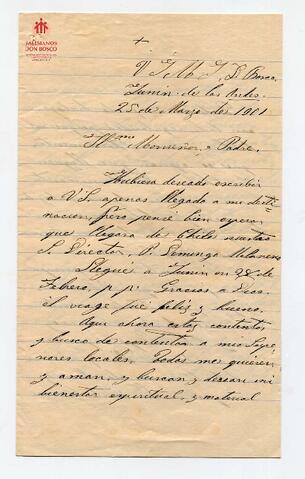 SALESIANOS
DON BOSCO
+
V. J. M. J. D. Bosco
Junin de los Andes
25 de Marzo de 1901
Monseñor y Padre,
Hubiera deseado escribir
a V S. apenas llegado a mi desti
nacion, pero pensé bien esperar
que llegara de Chile nuestro
S. Director, P. Domingo Milanesio
Llegué a Junin en 28 de
Febrero, p. p. Gracias a Dios
el viage fué feliz y bueno.
Aqui ahora estoy contento,
y busco de contentar a mis Supe
riores locales. Todos me quieren
y aman, y buscan y desean mi
bienestar espiritual, y material